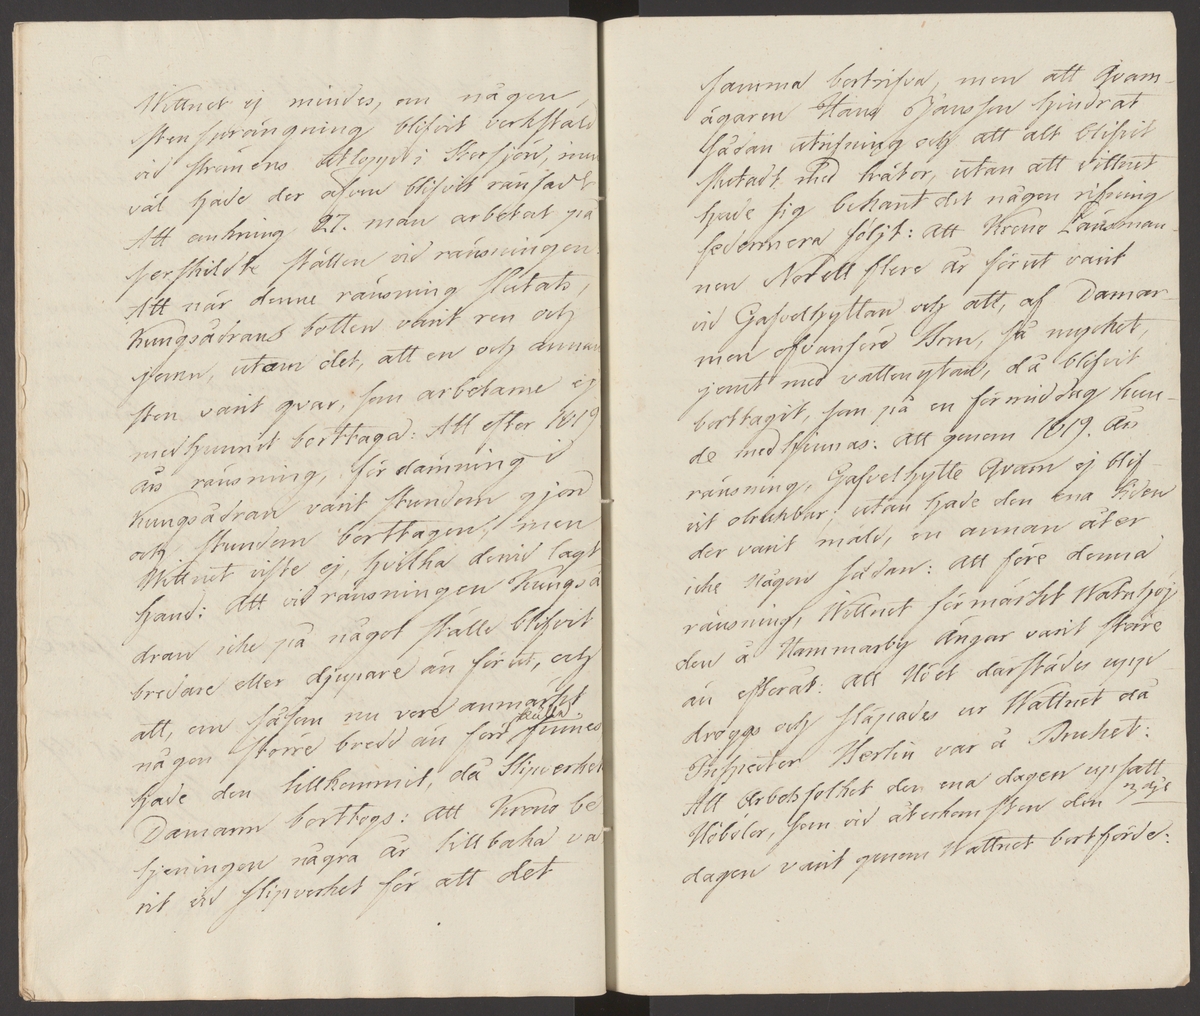 Wittnet ej mindes, om någon
stensprängning blifvit verkstäld
vid ströméns utloppet i Storsjön, men
väl hade der ofvan blifvit ränsadt
Att omkring 27. man arbetat på
serskildte ställen vid ränsningen:
Att när denne ränsning slutats,
Kungsådrans botten varit ren och
jemn, utom det, att en och annan
sten varit qvar, som arbetarne ej
medhunnit borttaga: Att efter 1819
års ränsning, fördämning i
Kungsådran varit stundom gjord
och stundom borttagen, men
Wittnet viste ej, hvilka dervid lagt
hand: Att vid ränsningen Kungså
dran icke på något ställe blifvit
bredare eller djupare än förut, och
att, om såsom nu vore anmärkt
någon större bredd än förr skulle finnes
hade den tillkommit, då Slipverket
Damarn borttogs: Att Krono be
tjeningen några år tillbaka va
rit vid slipverket för att det
samma bortrifva, men att Qvarn-
ägaren Hans Jansson hindrat
sådan utrifning och att alt blifvit
slutadt med träter, utan att vittnet
hade sig bekant det någon rifning
sedermera följt: Att Krono Länsman-
nen Norell flere år förut varit
vid Gafvelhyttan och att, af Damar-
men ofvanföre Bron, så mycket,
jemt med vattenytan, då blifvit
borttagit, som på en förmiddag kun-
de medhinnas: Att genom 1819. Års
ränsning, Gafvelhytte Qvarn ej blif-
vit obrukbar, utan hade den ena tiden
der varit mald, en annan åter
icke någon sådan: Att före denna
ränsning, Wittnet förmärkt Watuhöj
den å Hammarby Ängar varit större
än efteråt: Att Höet därstädes upp
droggs och släpades ur Wattnet då
Inspector Herlin var å Bruket:
Att Arbetsfolket den ena dagen upsatt
Höbölor, som vid återkomsten den nästf
dagen varit genom Wattnet bortförde: